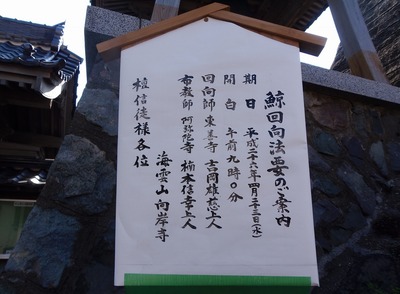 鯨回向法要のご案内
期日 平成二十六年四月二十三日(水)
開白 午前九時〇分
回向師 東善寺 吉岡雄慈上人
布教師 阿弥陀寺 楠木信幸上人
海雲山 向岸寺
檀信徒様各位